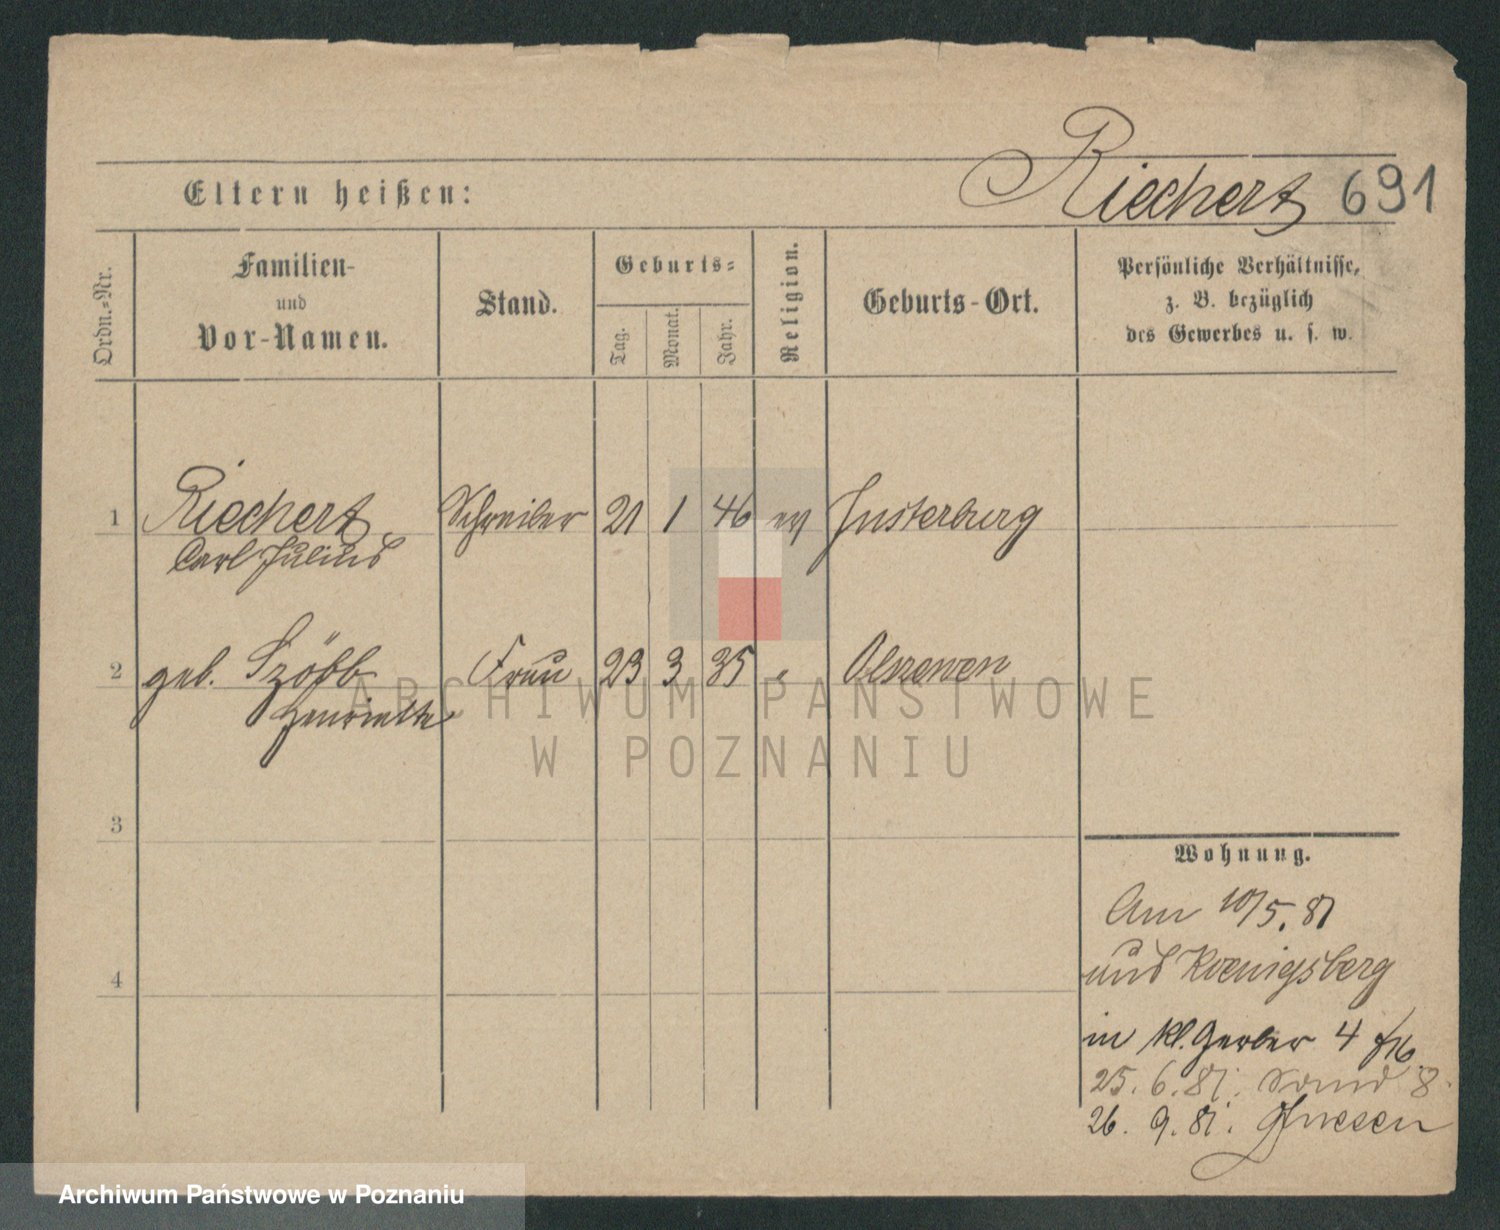 Riechert 691
Eltern heißen:
Ordn.-Nr.
Familien-
und
Vor-Namen.
Stand.
Geburts-
Tag.
Monat.
Jahr.
Religion.
Geburts-Ort.
Persönliche Verhältnisse,
z. B. bezüglich
des Gewerbes u. s. w.
1 Riechert Schreiber 21 1 46 ev Insterburg
Carl Julius
2 geb. Szöbb Frau 23 3 35 " Olszewen
Henriette
ARCHIWUM PAŃSTWOWE
W POZNANIU
3
Wohnung.
Am 10/5.81
und Koenigsberg
4
in kl. Gerber 4
25. 6. 81. Sand 8.
26. 9. 81. Gnesen
Archiwum Państwowe w Poznaniu